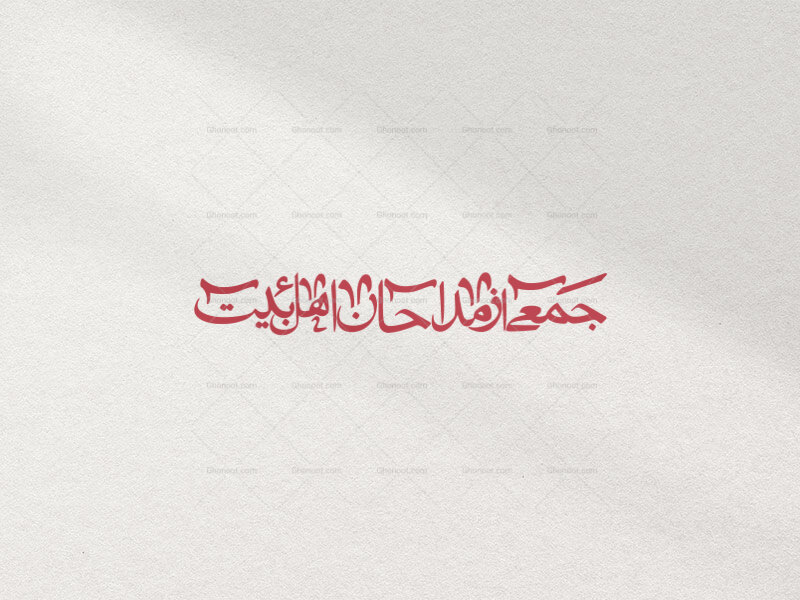 جمعی از مداحان اهل بیت
Ghonoot.com Ghonoot.com Ghonoot.com Ghonoot.com Ghonoot.com
Ghonoot.com Ghonoot.com Ghonoot.com Ghonoot.com Ghonoot.com
Ghonoot.com Ghonoot.com Ghonoot.com Ghonoot.com Ghonoot.com
Ghonoot.com Ghonoot.com Ghonoot.com Ghonoot.com Ghonoot.com